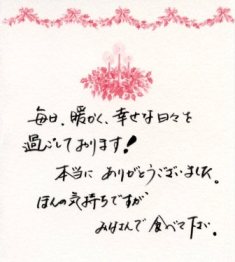 毎日、暖かく、幸せな日々を
過ごしております!
本当に ありがとうございました。
ほんの気持ちですが
みなさんで 食べて下さい。